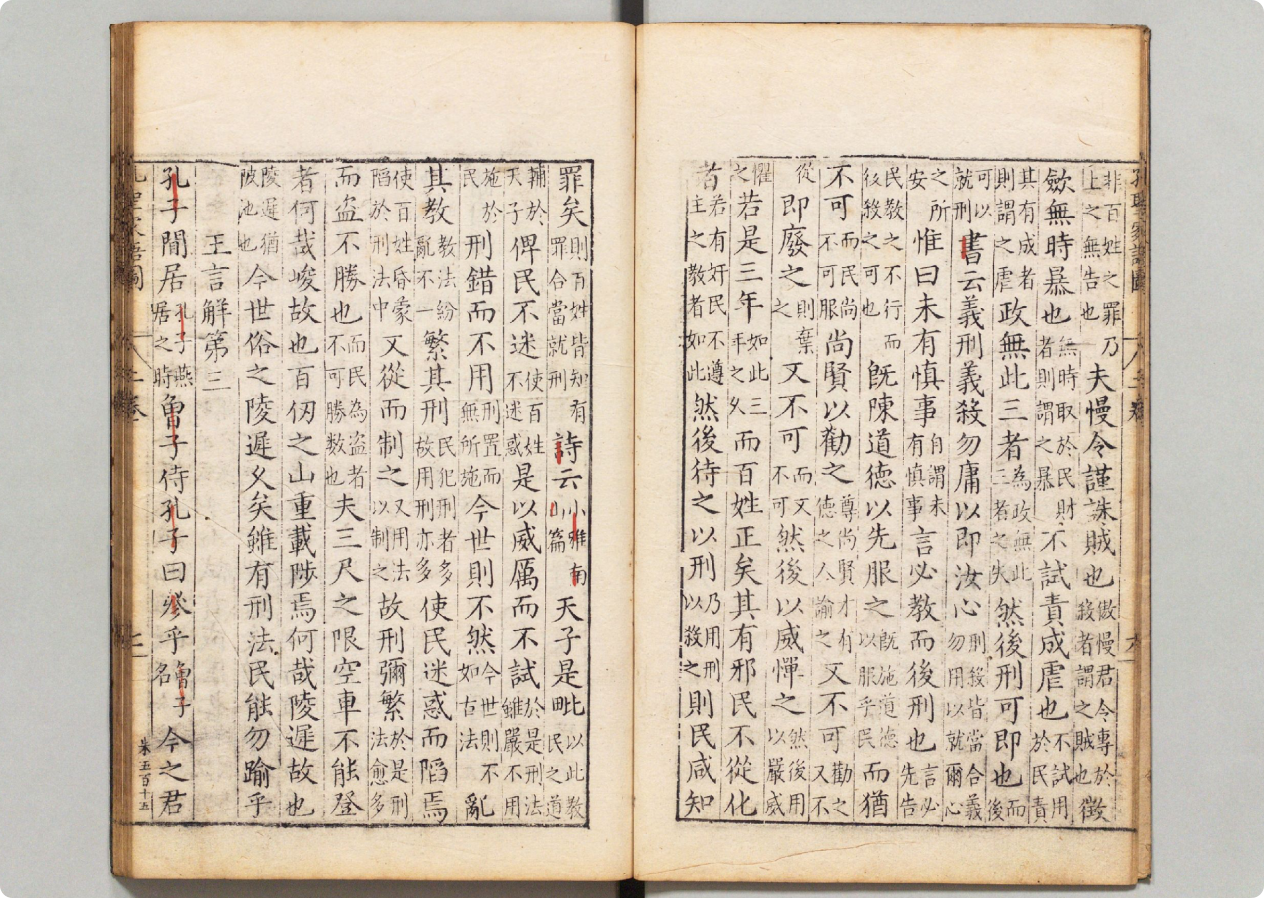 孔聖家語圖
非百姓之罪乃上之無告也夫慢令謹誅賊也傲慢君令專於殺者謂之賊也徵
歛無時暴也無時取於民財者則謂之暴不試責成虐也不試用於民責
其有成者則謂之虐政無此三者為政無此三者之失然後刑可即也而後
可以就刑書云義刑義殺勿庸以即汝心刑殺皆當合義勿用以就爾心
之所安惟曰未有慎事自謂未有慎事言必教而後刑也言必先告
民教之不行而後殺之可也旣陳道德以先服之旣施道德以服乎民而猶
不可而民尚不可服尚賢以勸之尊尚賢才有德之人諭之又不可勸之又不
從即廢之則棄之又不可而又不可然後以威憚之然後用以嚴威
懼之若是三年如此三年之久而百姓正矣其有邪民不從化
者若有奸民不遵主之教者如此然後待之以刑乃用刑以殺之則民咸知
罪矣則百姓皆知有罪合當就刑詩云小雅南山篇天子是毗以此教民之道
輔於天子俾民不迷使百姓不迷惑是以威厲而不試於是刑法雖嚴不用
施於民刑錯而不用刑置而無所施今世則不然今世則不如古法亂
其教教法紛亂不一繁其刑民犯刑者多故用刑亦多使民迷惑而陷焉
使百姓昏蒙陷於刑法中又從而制之又用法以制之故刑彌繁於是刑法愈多
而盗不勝也而民為盗者不可勝数也夫三尺之限空車不能登
者何哉峻故也百仞之山重載陟焉何哉陵遲故也
陵遲猶陂池也今世俗之陵遲久矣雖有刑法民能勿踰乎
王言解第三
孔子閒居孔子燕居之時曾子侍孔子曰參乎曾子名今之君
朱五百十五